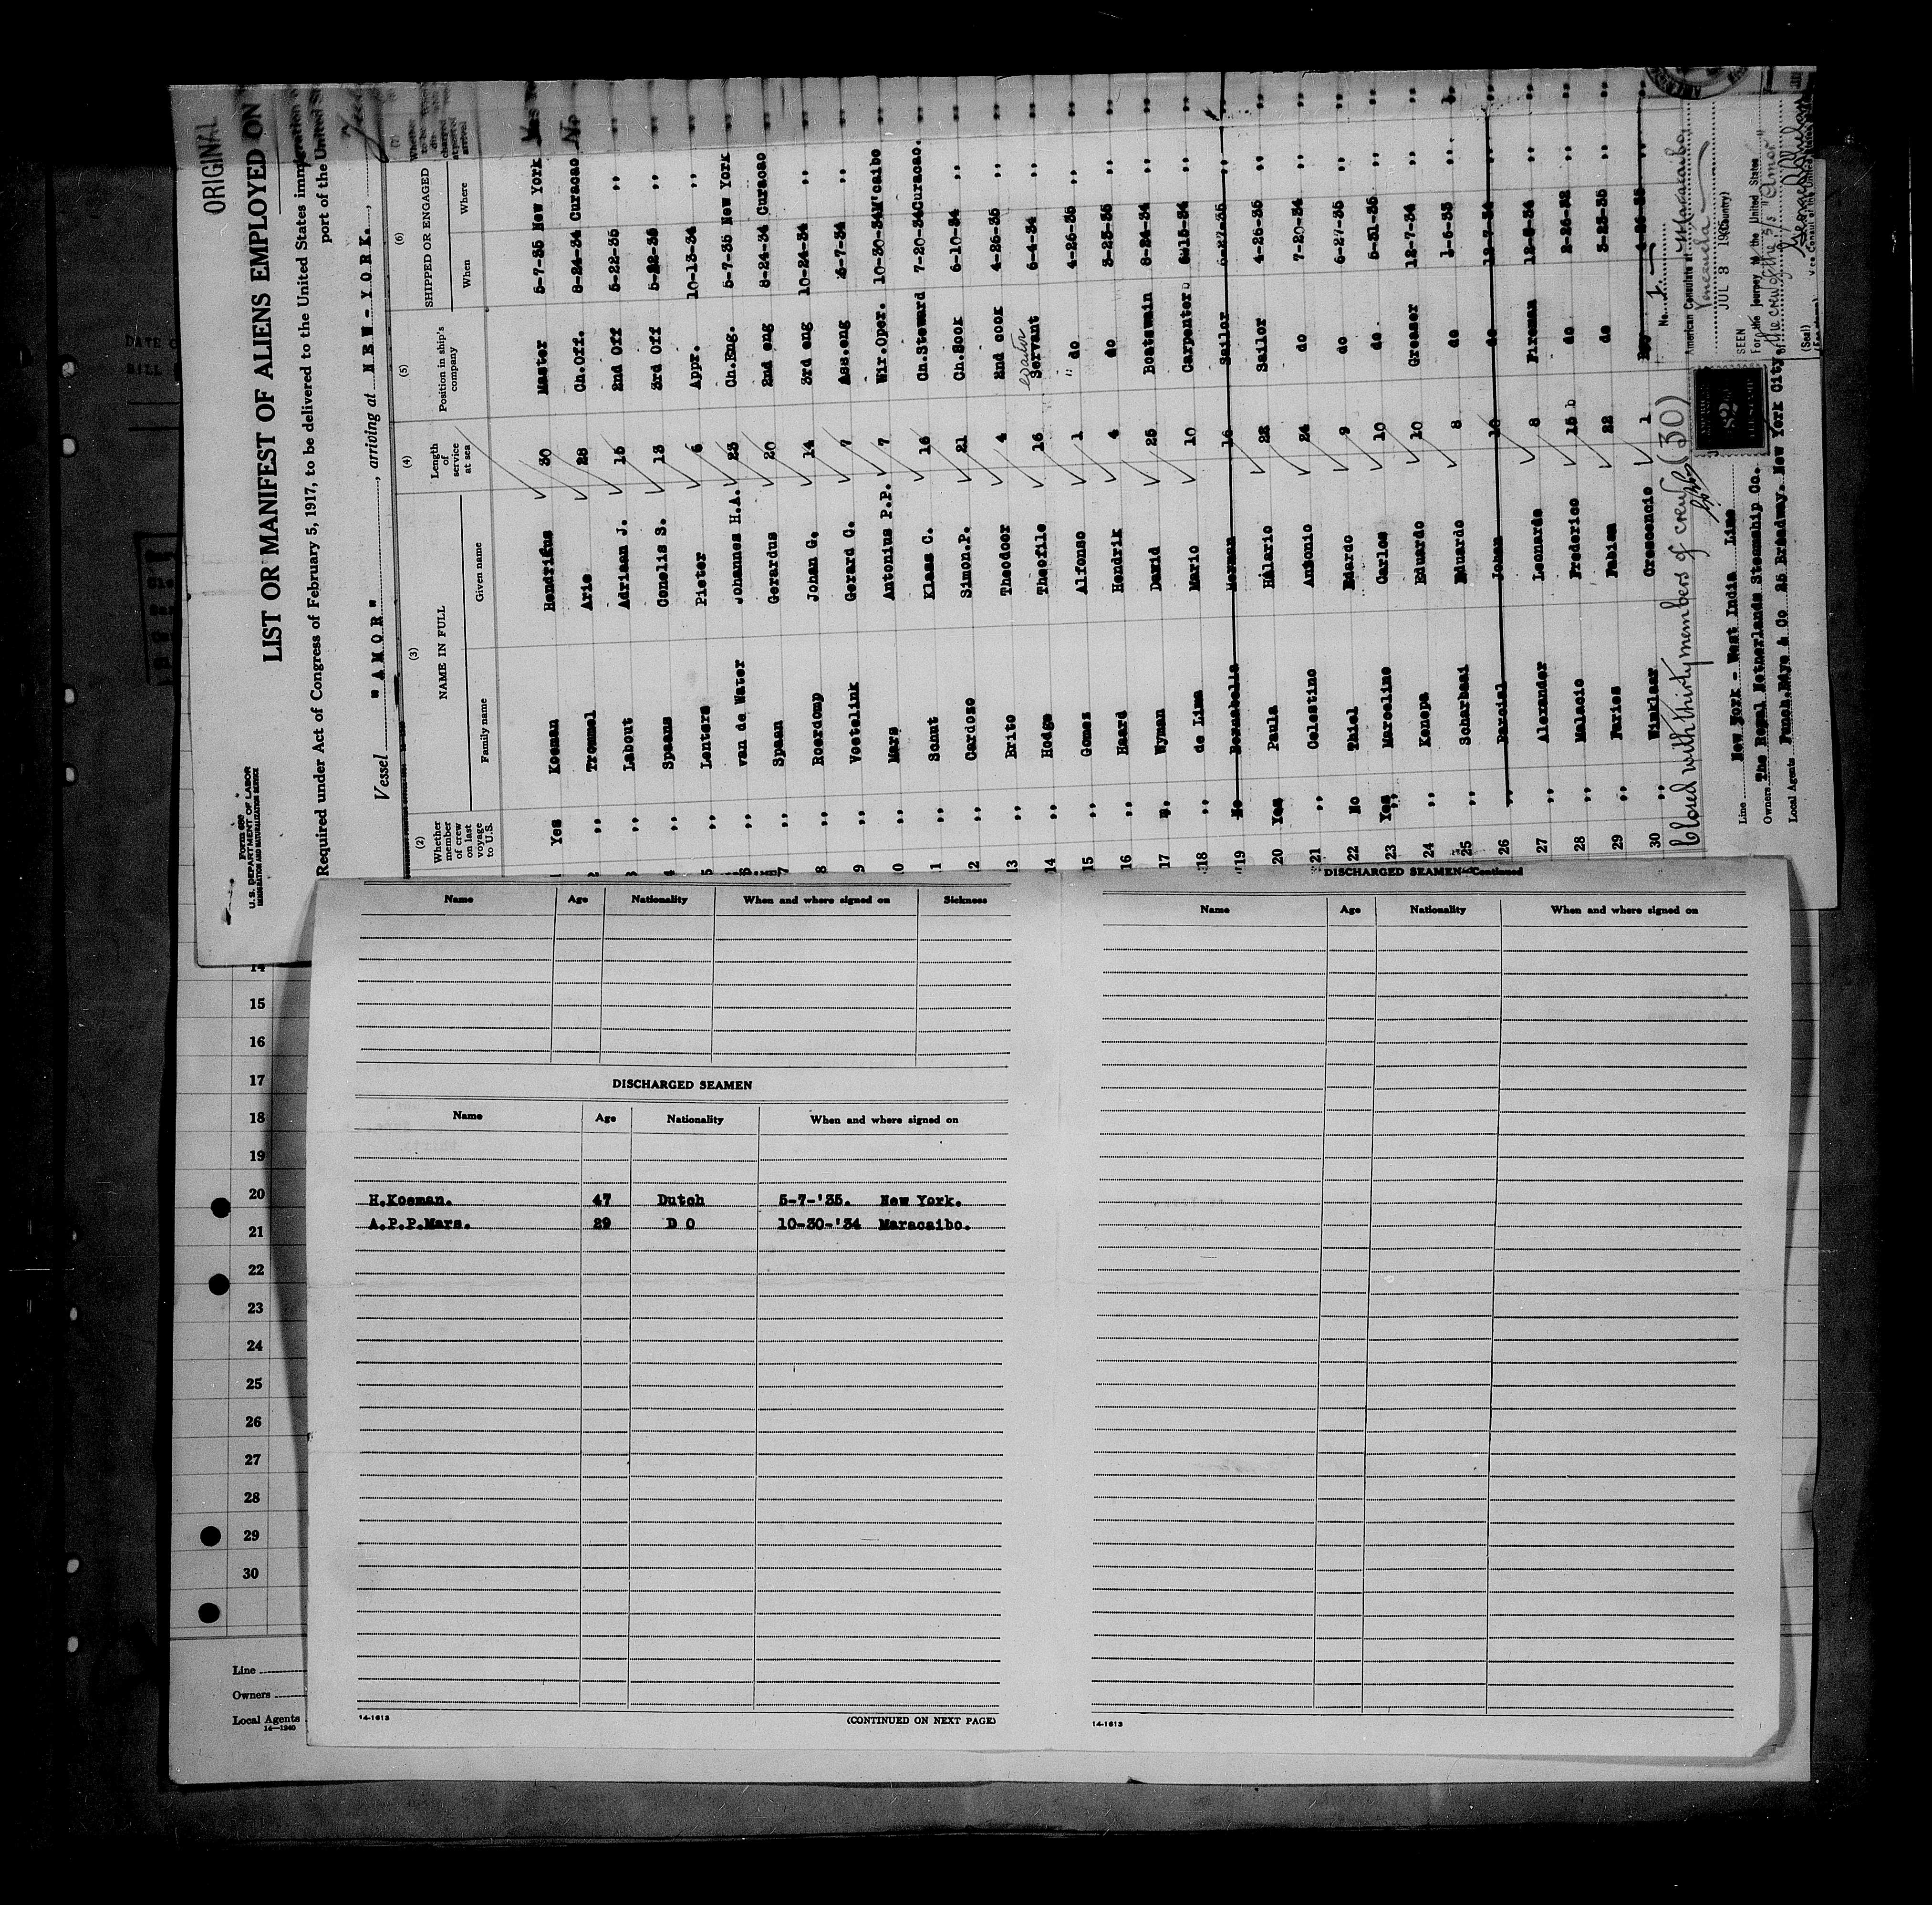 ORIGINAL
Form 680
U. S. DEPARTMENT OF LABOR
IMMIGRATION AND NATURALIZATION SERVICE
LIST OR MANIFEST OF ALIENS EMPLOYED ON
Required under Act of Congress of February 5, 1917, to be delivered to the United States immigration
port of the United St
Vessel "AMOR", arriving at NEW-YORK.,
(2) Whether member of crew on last voyage to U.S. (3) NAME IN FULL Family name Given name (4) Length of service at sea (5) Position in ship's company (6) SHIPPED OR ENGAGED When Where (7) Whether to be discharged at port of arrival
1 Yes Koeman Hendrikus 30 Master 5-7-35 New York Yes
2 ,, Trommel Arie 28 Ch.Off. 8-24-34 Curacao No
3 ,, Labout Adriaan J. 15 2nd Off 5-22-35 ,, ,,
4 ,, Spaans Conelis S. 13 3rd Off 5-22-35 ,, ,,
5 ,, Lenters Pieter 6 Appr. 10-13-34 ,, ,,
6 ,, van de Water Johannes H.A. 23 Ch.Eng. 5-7-35 New York ,,
7 ,, Spaan Gerardus 20 2nd eng 8-24-34 Curacao ,,
8 ,, Roerdomp Johan G. 14 3rd eng 10-24-34 ,, ,,
9 ,, Voetelink Gerard C. 7 Ass.eng -7-34 ,, ,,
10 ,, Mars Antonius P.P. 7 Wir.Oper. 10-30-34 M'caibo ,,
11 ,, Schut Klaas C. 16 Ch.Steward 7-20-34 Curacao. ,,
12 ,, Cardozo Simon.P. 21 Ch.Book 6-10-34 ,, ,,
13 ,, Brito Theodoor 4 2nd cook 4-26-35 ,, ,,
14 ,, Hodge Theofile 16 Servant 6-4-34 ,, ,,
15 ,, Gomez Alfonso 1 " do 4-26-35 ,, ,,
16 ,, Haard Hendrik 4 do 3-23-35 ,, ,,
17 Wyman David 25 Boatswain 8-24-34 ,, ,,
18 ,, de Lima Mario 10 Carpenter -15-34 ,, ,,
19 No Bernabella Herman 16 Sailor 6-27-35 ,, ,,
20 Yes Paula Hilario 22 Sailor 4-26-35 ,, ,,
21 ,, Celestino Antonio 24 do 7-20-34 ,, ,,
22 No Thiel Edardo 9 do 6-27-35 ,, ,,
23 Yes Marcelino Carlos 10 do 5-31-35 ,, ,,
24 ,, Kenepa Eduardo 10 Greaser 12-7-34 ,, ,,
25 ,, Scharbaai Eduardo 8 do 1-6-33 ,, ,,
26 ,, Parcial Johan 10 do 12-7-34 ,, ,,
27 ,, Alexander Leonardo 8 Fireman 12-8-34 ,, ,,
28 ,, Malacio Frederico 15 do 2-26-32 ,, ,,
29 ,, Faries Fabian 22 do 3-23-35 ,, ,,
30 ,, Winklaar Crescencio 1 Boy 4-26-35 ,, ,,
Closed with thirty members of crew (30)
No. 1
American Consulate at Maracaibo
Venezuela (Country)
JUL 8 1935
SEEN
For the journey to the United States
of the crew of the S/S "Amor"
(Seal) Vice Consul of the United States
Line New York - West India Line
Owners The Royal Netherlands Steamship Co.
Local Agents Funch,Edye & Co 25 Broadway. New York City
Name Age Nationality When and where signed on Sickness
DISCHARGED SEAMEN
Name Age Nationality When and where signed on
H.Koeman. 47 Dutch 5-7-'35. New York.
A.P.P.Mars. 29 D O 10-30-'34 Maracaibo.
14-1613 (CONTINUED ON NEXT PAGE)
DISCHARGED SEAMEN—Continued
Name Age Nationality When and where signed on
14-1613
14
15
16
17
18
19
20
21
22
23
24
25
26
27
28
29
30
Line
Owners
Local Agents
14—1240